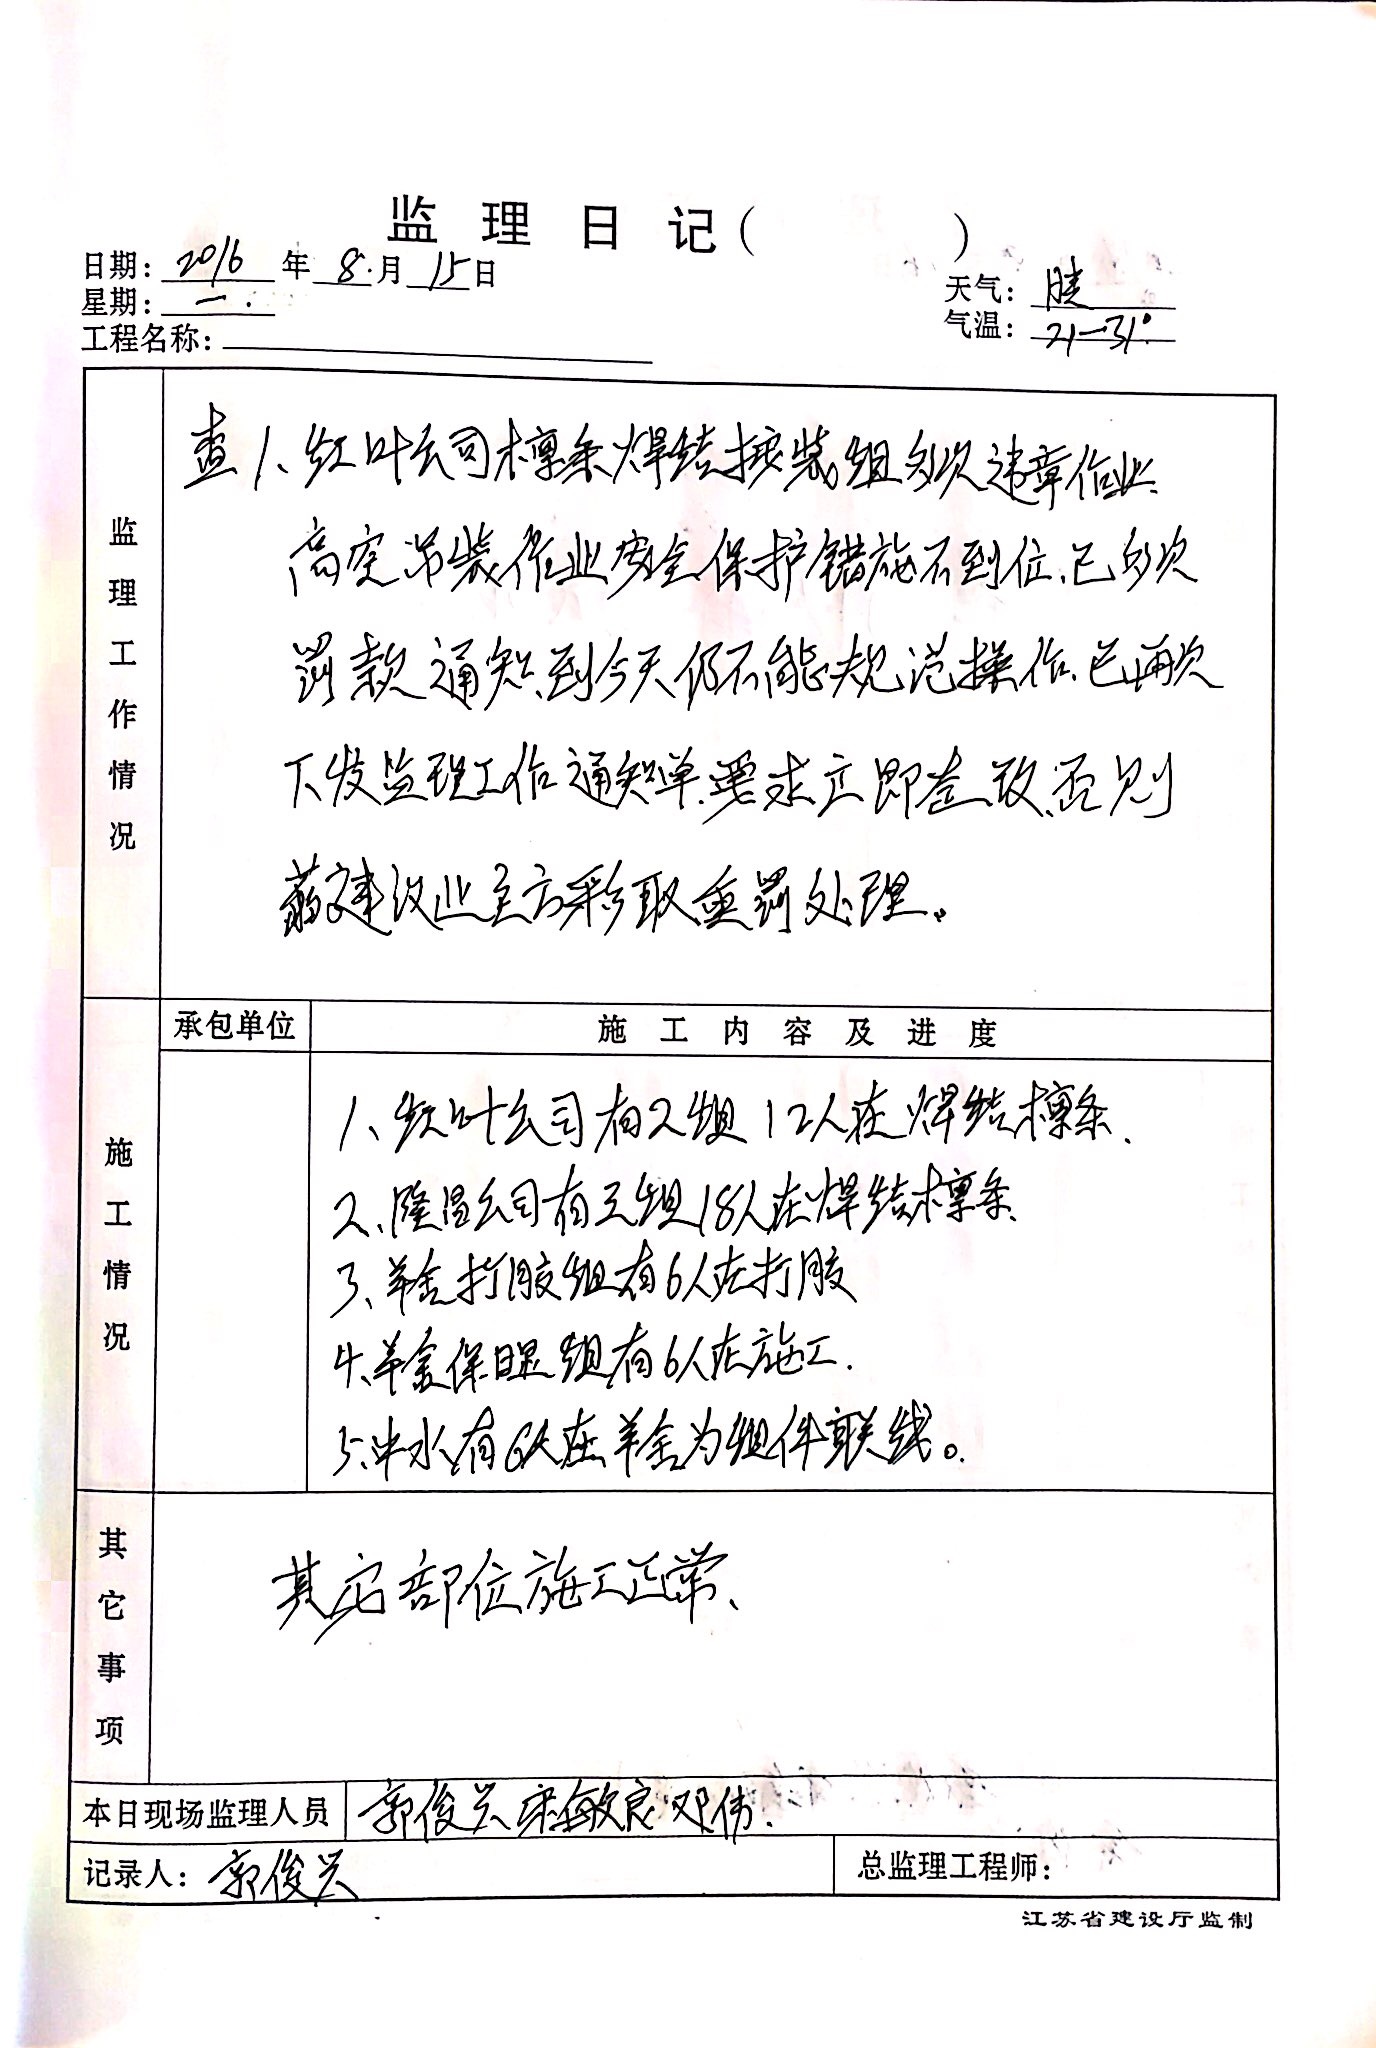 监理日记（ ）
日期：2016年8月15日
星期：一
天气：晴
气温：21—31°
工程名称：
监理工作情况
查1、红叶公司檩条焊结按装组多次违章作业、
高空吊装作业安全保护错施不到位、已多次
罚款通知、到今天仍不能规范操作、已再次
下发监理工作通知单、要求立即查改、否则
建议业主方采取重罚处理。
承包单位
施工内容及进度
施工情况
1、红叶公司有2组12人在焊结檩条、
2、隆昌公司有三组18人在焊结檩条、
3、羊舍打胶组有6人在打胶
4、羊舍保温组有6人在施工.
5、中水有6人在羊舍为组件联线。
其它事项
其它部位施工正常、
本日现场监理人员
郭俊兴 宋敏良 邓伟.
记录人：郭俊兴
总监理工程师：
江苏省建设厅监制